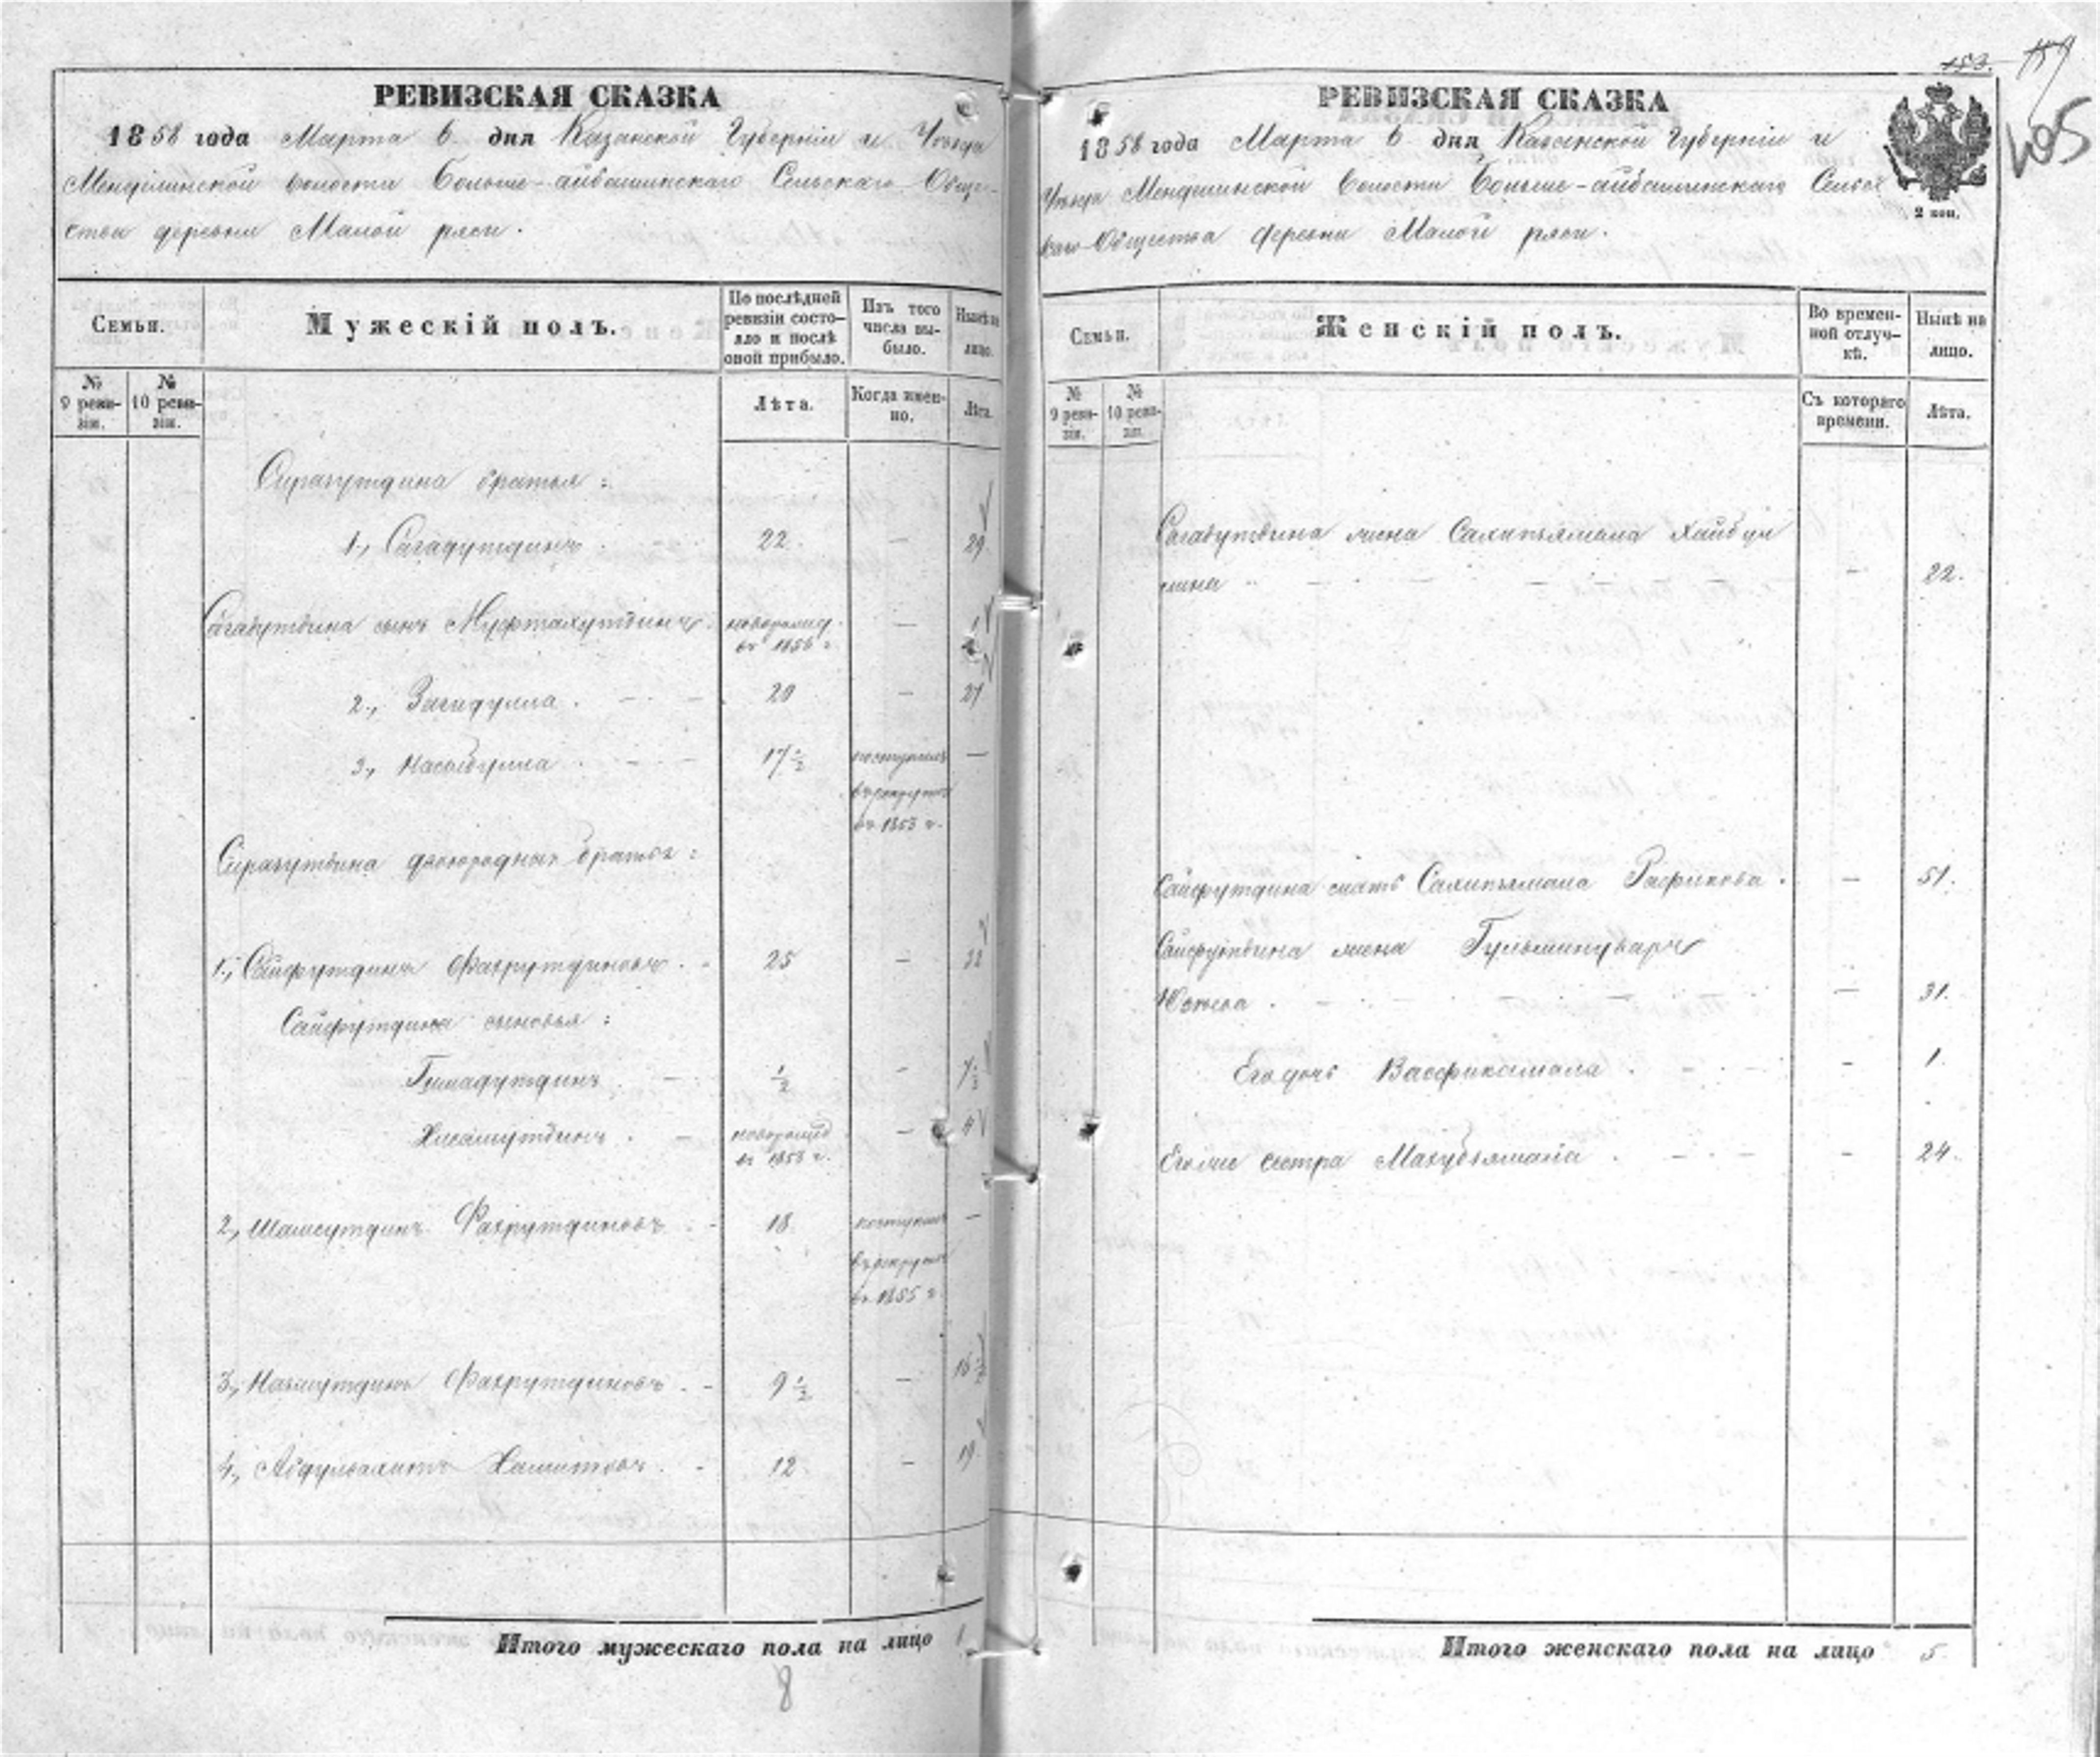 РЕВИЗСКАЯ СКАЗКА
1858 года Марта 6 дня Казанской Губернiи и Уѣзда
Менделинской волости Больше-айбашинскаго Сельскаго Обще-
ства деревни Малой ряси.
Семьи.
Мужескiй полъ.
По послѣдней ревизiи состо-
яло и послѣ оной прибыло.
Изъ того числа вы-
было.
Нынѣ на лицо.
№ 9 реви-
зiи.
№ 10 реви-
зiи.
Лѣта.
Когда имен-
но.
Лѣта.
Сиразутдина братья:
1., Сагадутдинъ. 22. — 29
Сагадутдина сынъ Муфтахутдинъ. новорожд. —
въ 1856 г.
2., Загидулла. 20 — 27
3., 17 1/2 поступилъ —
въ рекруты
въ 1853 г.
Сиразутдина двоюродныя братья:
1., Сайфутдинъ Фахрутдиновъ. 25 — 32
Сайфутдина сыновья:
Гимадутдинъ. 1/2 — 7 1/2
Хисамутдинъ. новорожд —
въ г.
2., Шамсутдинъ Фахрутдиновъ. 18. поступилъ —
въ рекруты
въ 1855 г.
3., Назмутдинъ Фахрутдиновъ. 9 1/2 — 16 1/2
4., Абдулвалитъ Хамитовъ. 12. — 19
Итого мужескаго пола на лицо
8
153.
405
РЕВИЗСКАЯ СКАЗКА
1858 года Марта 6 дня Казанской Губернiи и
Уѣзда Менделинской волости Больше-айбашинскаго Сельс
каго Общества деревни Малой ряси.
2 коп.
Семьи.
Женскiй полъ.
Во времен-
ной отлуч-
кѣ.
Нынѣ на лицо.
№ 9 реви-
зiи.
№ 10 реви-
зiи.
Съ котораго времени.
Лѣта.
Сагадутдина жена Салипзямала Хайбул
лина — 22.
Сайфутдина мать Салипзямала Рафикова. — 51.
Сайфутдина жена
— 31.
Его дочь — 1.
Его же сестра Махубзямала. — 24.
Итого женскаго пола на лицо 5